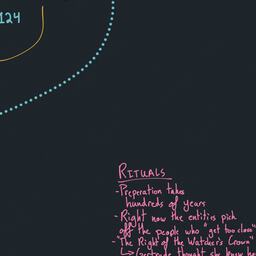 124
RITUALS
-Preperation takes
hundreds of years
-Right now the entities pick
off the people who "get too close"
-"The Right of the Watcher's Crown"
↳Gertrude thought she knew ho